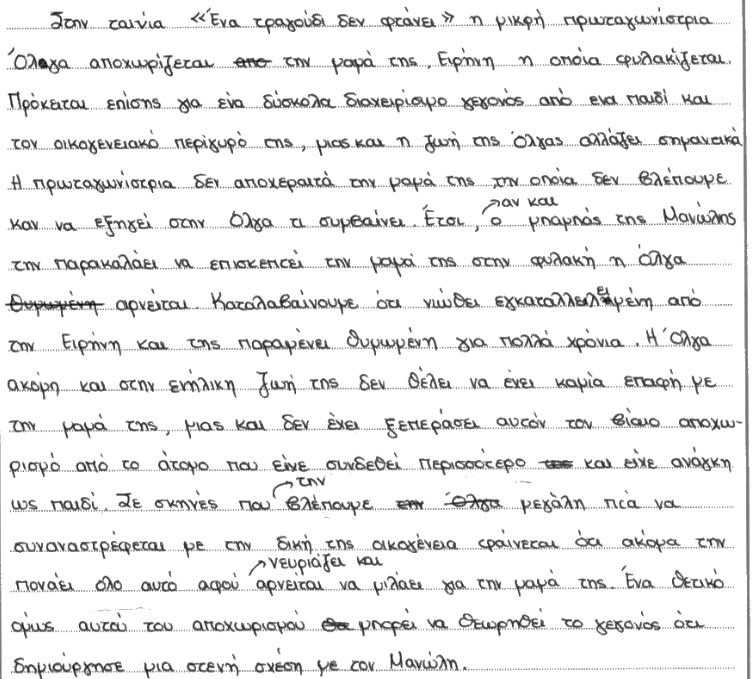 Στην ταινία «Ένα τραγούδι δεν φτάνει» η μικρή πρωταγωνίστρια
Όλγα αποχωρίζεται από την μαμά της, Ειρήνη η οποία φυλακίζεται.
Πρόκειται επίσης για ένα δύσκολα διαχειρίσιμο γεγονός από ενα παιδί και
τον οικογενειακό περίγυρό της, μιας και η ζωή της Όλγας αλλάζει σημαντικά
Η πρωταγωνίστρια δεν αποχεραιτά την μαμά της την οποία δεν βλέπουμε
καν να εξηγεί στην Όλγα τι συμβαίνει. Έτσι, αν και ο μπαμπάς της Μανώλης
την παρακαλάει να επισκεπτεί την μαμά της στην φυλακή η Όλγα
θυμωμένη αρνείται. Καταλαβαίνουμε ότι νιώθει εγκαταλλειλειμένη από
την Ειρήνη και της παραμένει θυμωμένη για πολλά χρόνια. Η Όλγα
ακόμη και στην ενήλικη ζωή της δεν θέλει να έχει καμία επαφή με
την μαμά της, μιας και δεν έχει ξεπεράσει αυτόν τον βίαιο αποχω-
ρισμό από το άτομο που είχε συνδεθεί περισσότερο και είχε ανάγκη
ως παιδί. Σε σκηνές που την βλέπουμε την Όλγα μεγάλη πιά να
συναναστρέφεται με την δική της οικογένεια φαίνεται ότι ακόμα την
πονάει όλο αυτό αφού νευριάζει και αρνείται να μιλάει για την μαμά της. Ένα θετικό
όμως αυτού του αποχωρισμού θα μπορεί να θεωρηθεί το γεγονός ότι
δημιούργησε μια στενή σχέση με τον Μανώλη.